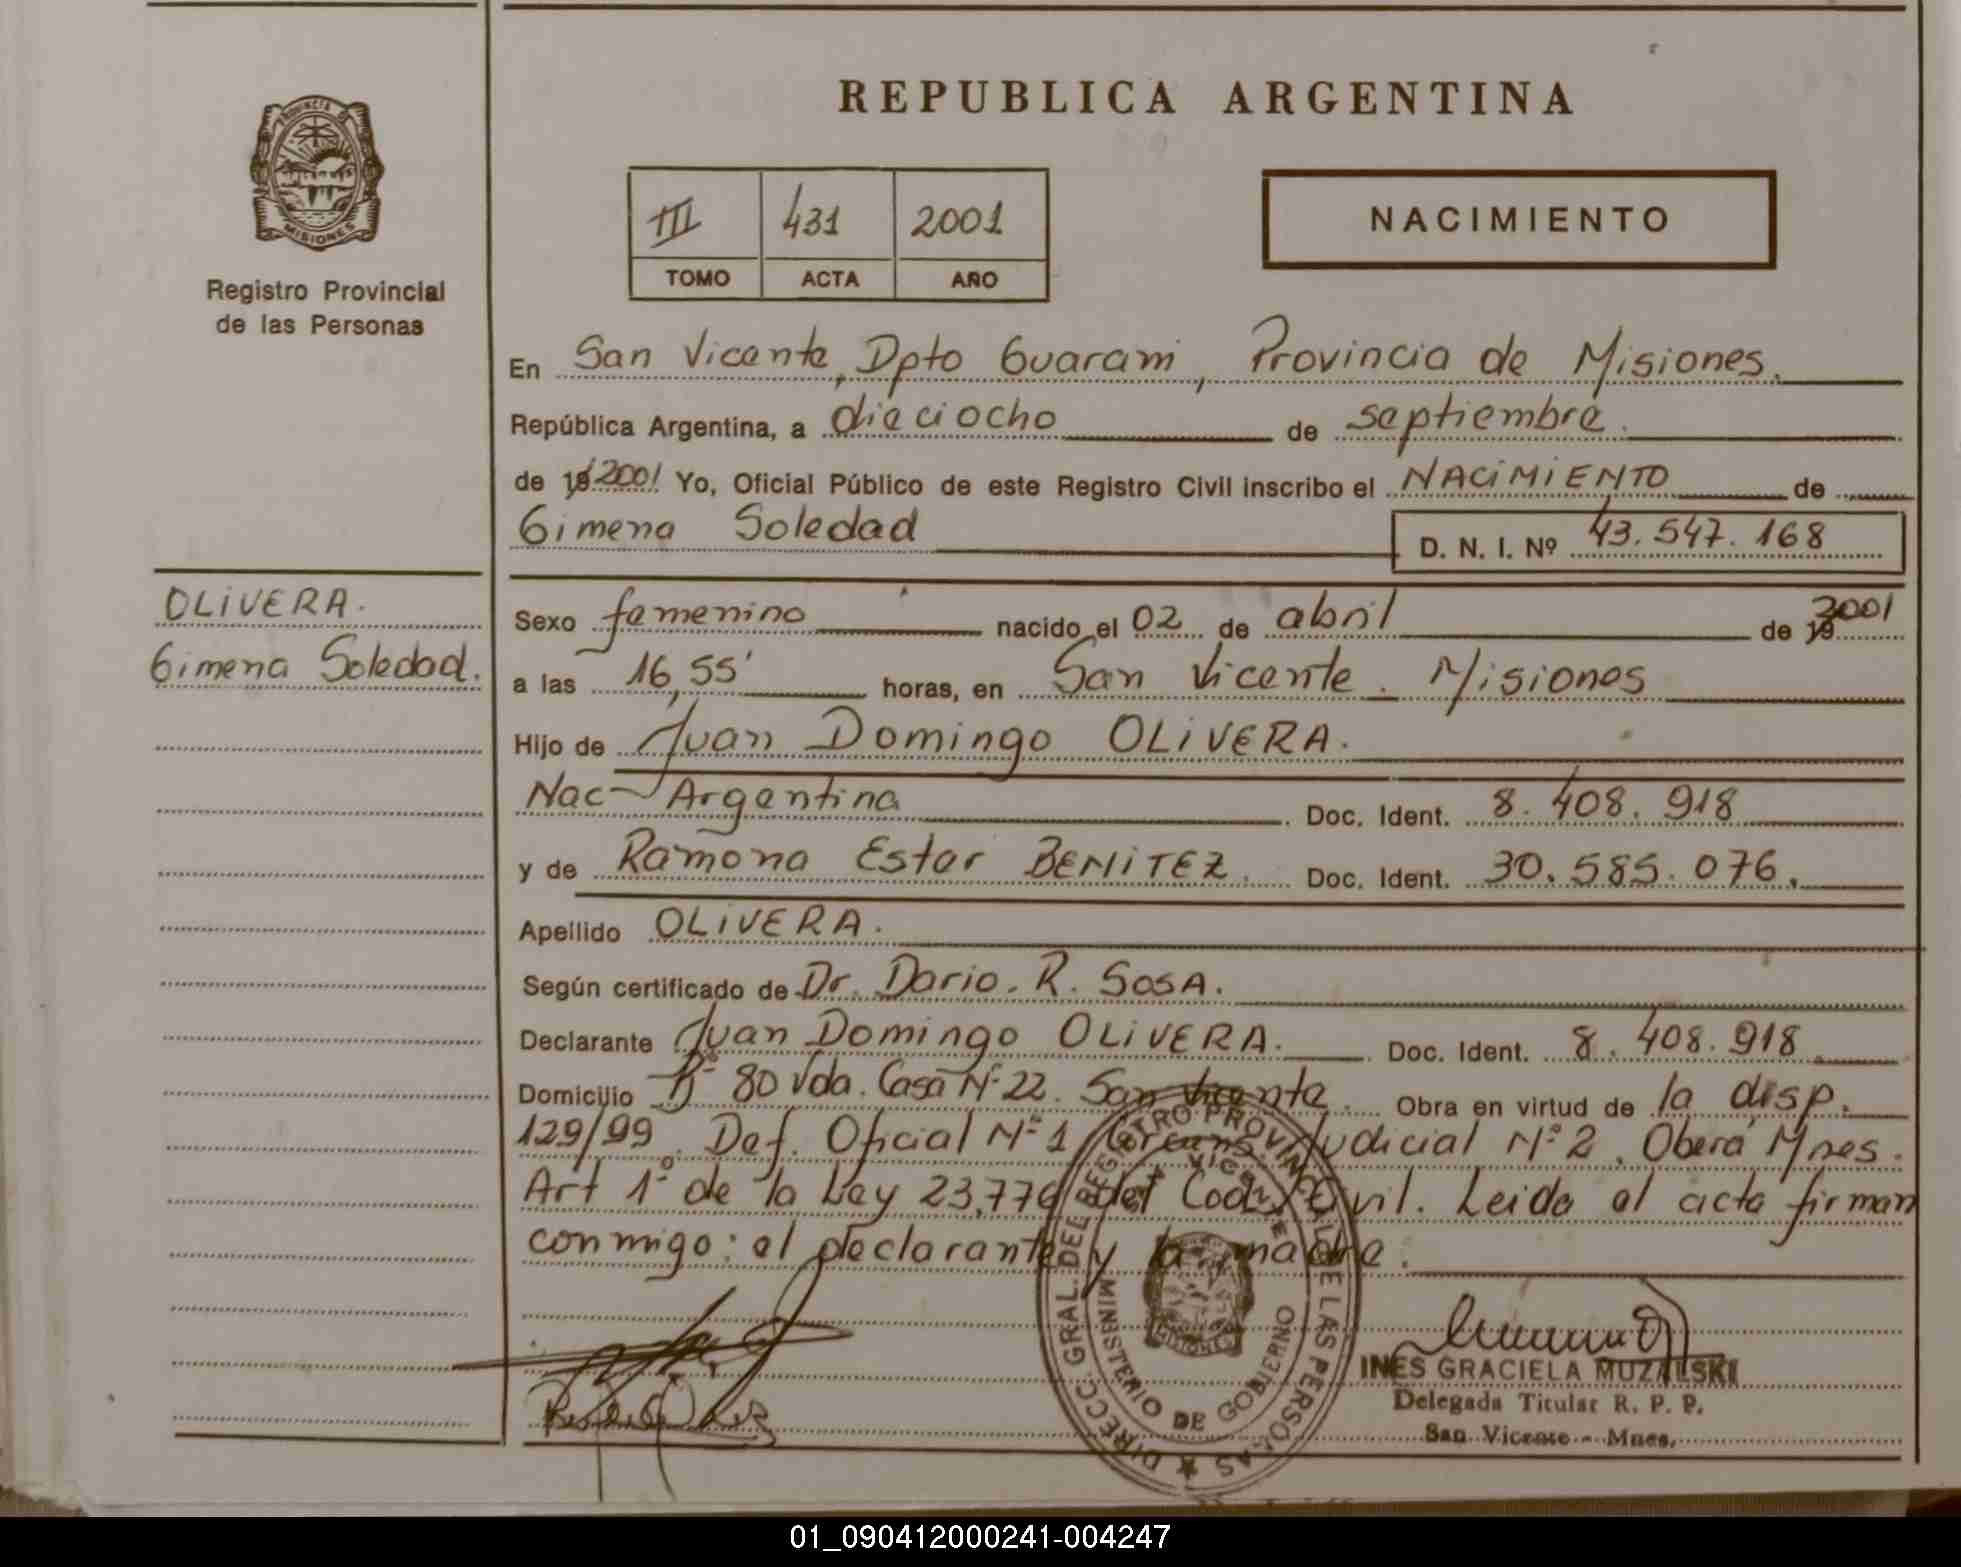 REPUBLICA ARGENTINA
PROVINCIA DE
MISIONES
Registro Provincial
de las Personas
III 431 2001
TOMO ACTA AÑO
NACIMIENTO
En San Vicente, Dpto Guarani, Provincia de Misiones.
República Argentina, a dieciocho de septiembre.
de 19 2001 Yo, Oficial Público de este Registro Civil inscribo el NACIMIENTO de
Gimena Soledad D. N. I. Nº 43.547.168
OLIVERA.
Gimena Soledad.
Sexo femenino nacido el 02 de abril de 19 2001
a las 16,55' horas, en San Vicente. Misiones
Hijo de Juan Domingo OLIVERA.
Nac- Argentina Doc. Ident. 8.408.918
y de Ramona Ester BENITEZ. Doc. Ident. 30.585.076.
Apellido OLIVERA.
Según certificado de Dr. Dario. R. SOSA.
Declarante Juan Domingo OLIVERA. Doc. Ident. 8.408.918
Domicilio Bº 80 Vda. Casa Nº 22. San Vicente. Obra en virtud de la disp.
129/99. Def. Oficial Nº 1 Circuns. Judicial Nº 2. Oberá Mnes.
Art 1º de la Ley 23.776 del Cod. Civil. Leida el acta firman
conmigo: el declarante y la madre.
DIRECC. GRAL. DEL REGISTRO PROVINCIAL DE LAS PERSONAS
MINISTERIO DE GOBIERNO
MISIONES
INES GRACIELA MUZALSKI
Delegada Titular R. P. P.
San Vicente - Mnes.
01_090412000241-004247